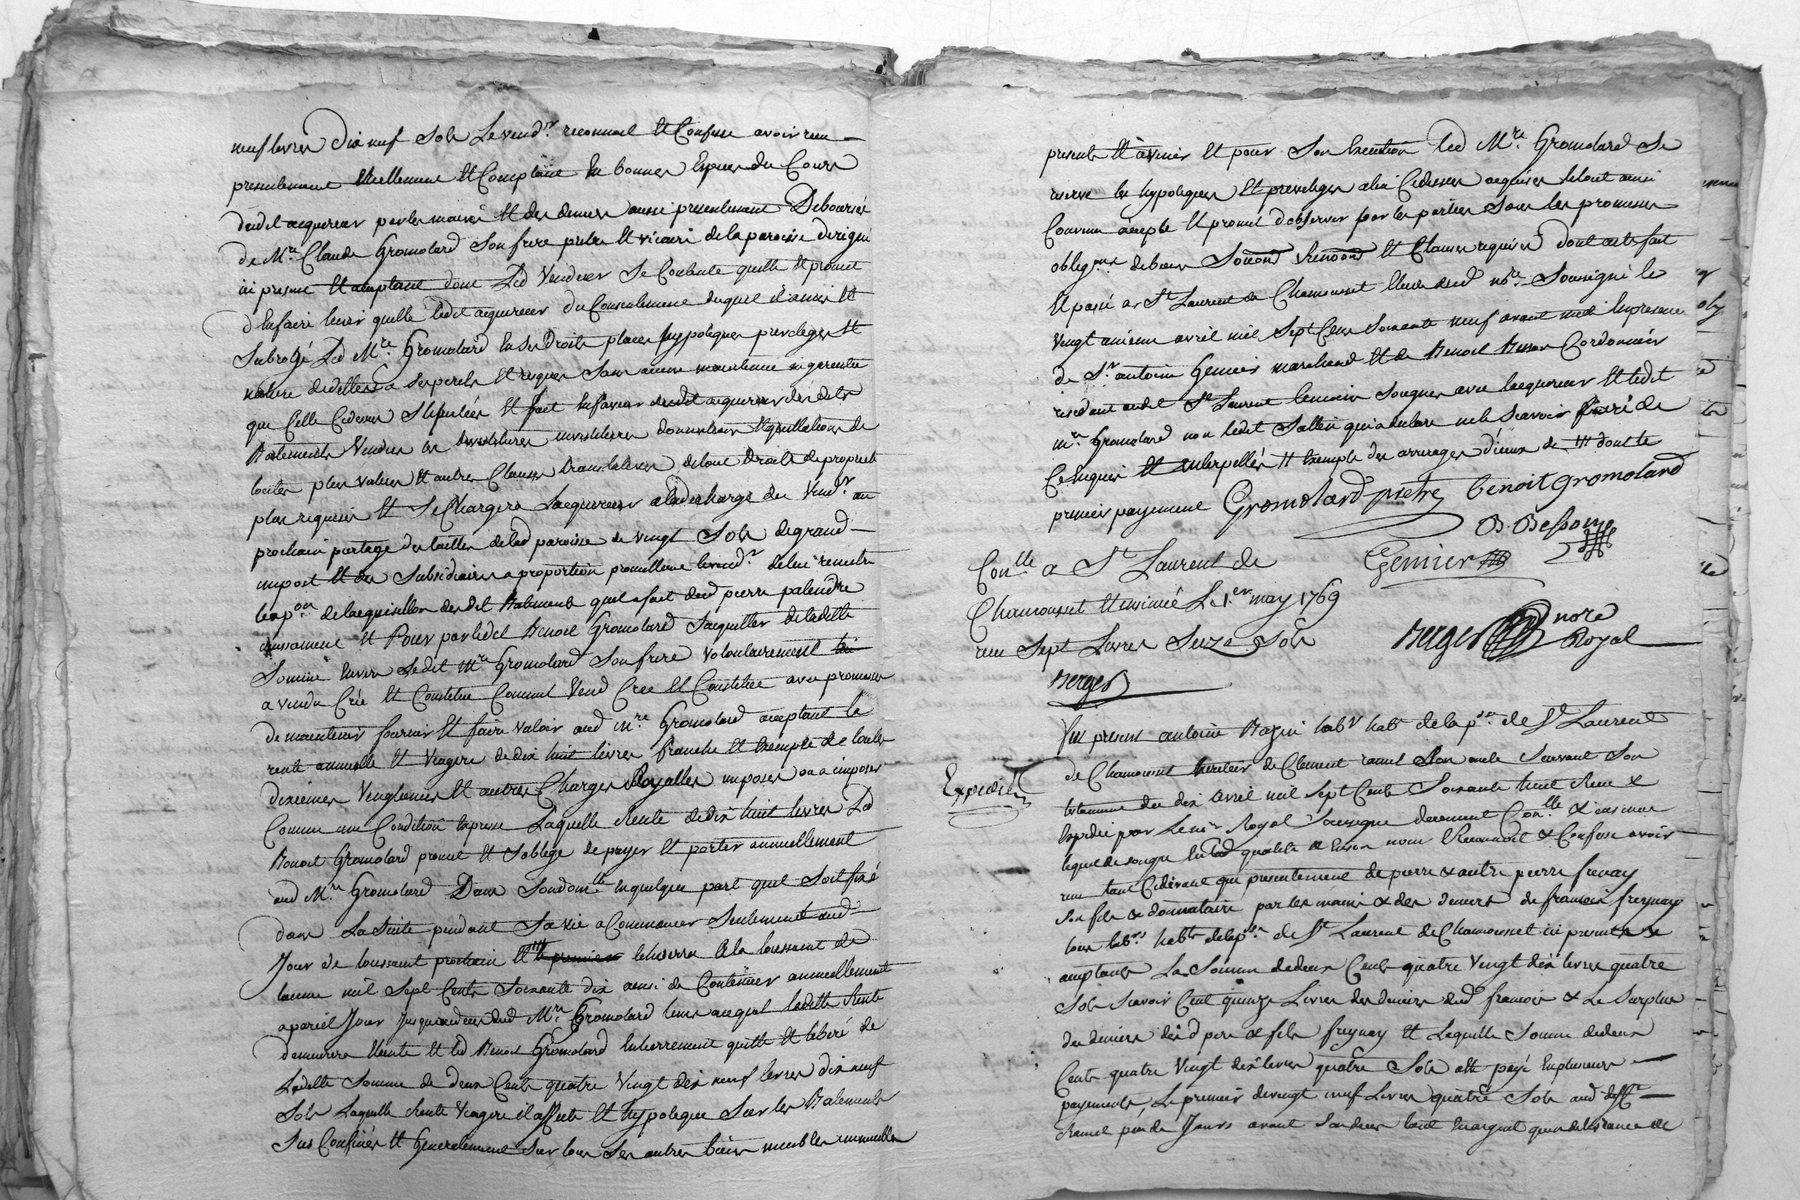 neuf livres dix neuf sols Le vendr. reconnoit et Confesse avoir recu
presentement reellement et Comptant en bonnes Especes du Cours
dudit acquereur par les mains et des deniers aussi presentement Deboursés
de Mre. Claude Gromolard son frere pretre et vicaire de la paroisse
ici present et acceptant dont Led Vendeur se Contente quitte et promet
d'en faire tenir quitte ledit acquereur du Consentement duquel il a mis et
Subrogé Led Mre Gromolard en ses Droits places hypoteques privileges et
a ses perils et risques sans aucune maintenue ni garentie
que Celle Cidevant Stipulée Et fait en faveur dudit acquereur desdits
Batiments Vendus les devestitures investitures
plus values et autres Clauses translatives de tout Droits de propriété
plus requises et se Chargera Lacquereur a la decharge du Vendr. au
prochain partage des tailles de lad paroisse de vingt Sols de grand
impost et du Subsidiaire a proportion promettant le vendr. de lui remettre
de lacquisition desdits Batiments quil a fait dud pierre
et Pour par ledit Benoit Gromolard Sacquitter de ladite
Somme envers ledit mre Gromolard son frere volontairement
a vendu Créé et Constitué Comme Vend Crée et Constitue avec promesse
de maintenir fournir et faire valoir aud mre Gromolard acceptant la
rente annuelle et viagere de dix huit livres franche et Exempte de toutes
dixiemes Vingtiemes et autres Charges Royalles imposés ou a imposer
Comme une Condition Expresse Laquelle Rente de dix huit livres Led
Benoit Gromolard promet et s'oblige de payer et porter annuellement
aud Mre Gromolard Dans Son domlle en quelque part quil Soit fixé
dans La Suite pendant Sa vie a Commencer Seulement aud
Jour de toussaint prochain a la toussaint de
lannée mil Sept Cents Soixante dix ainsi de Continuer annuellement
a pareil Jour jusquau deces dud Mre Gromolard lors auquel ladite Rente
demeurera Eteinte et led Benoit Gromolard entierrement quitte et liberé de
Ladite Somme de deux Cents quatre Vingt dix neuf livres dix neuf
Sols Laquelle Rente Viagere il affecte et hypoteque Sur les Batiments
Sus Confinés et Generalement Sur tous Ses autres biens meubles immeubles
presents et avenir et pour Son Execution led Mre. Gromolard Se
reserve les hypoteques et privileges a lui Cidessus acquises le tout ainsi
Convenu accepté et promis d'observer par les parties Sous les promesses
obligons. de biens Soumons Renons et Clauses requises dont acte fait
Et passé a St Laurent de Chamousset Etude dud nore. Soussigné le
vingt avril mil Sept Cent Soixante neuf avant midi En presence
de Sr. antoine Gemier marchand et de Benoit Besson Cordonnier
residant audit St Laurent temoins Soussignés avec lacquereur et ledit
mre Gromolard non ledit qui a declaré ne le Scavoir faire de
Ce Enquis et interpellés et Exempte des arrerages de et dont le
premier payement Gromolard prêtre benoit Gromolard
B. Besson
Gemier
Conlle a St Laurent de
Chamousset et insinué Le 1er may 1769
recu Sept Livres Seize Sols
Berger
Berger nore
Royal
Expedié
Fut present antoine habt de la psse. de St Laurent
de Chamousset heritier de Clement Son oncle Suivant Son
testament du dix avril mil Sept Cents Soixante huit Recu et
Expedié par Le nore Royal Soussigné dueement Conlle &
lequel de son gre En lad qualité et En son nom Reconnoit & Confesse avoir
recu tant Cidevant que presentement de pierre & autre pierre
son fils & donnataire par les mains & des deniers de francois fresnay
tous labrs habts de la psse de St Laurent de Chamousset ici presents &
acceptants La Somme de deux Cents quatre Vingt dix livres quatre
Sols Scavoir Cent quinze Livres des deniers dud francois & Le Surplus
des deniers desd pere & fils fresnay Et Laquelle Somme de deux
Cents quatre Vingt dix livres quatre Sols a été payé En plusieurs
payements, Le premier de vingt neuf Livres quatre Sols aud
peu de Jours avant Son deces tant En argent que delivrance de